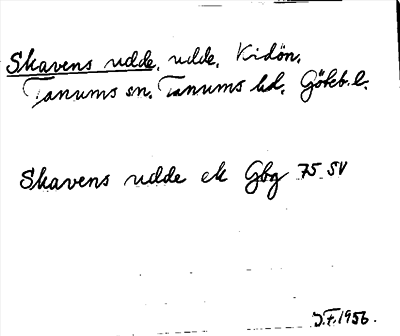 Skavens udde, udde, Kidön.
Tanums sn. Tanums hd. Göteb. l.
Skavens udde ek Gbg 75 SV
J.F. 1956.